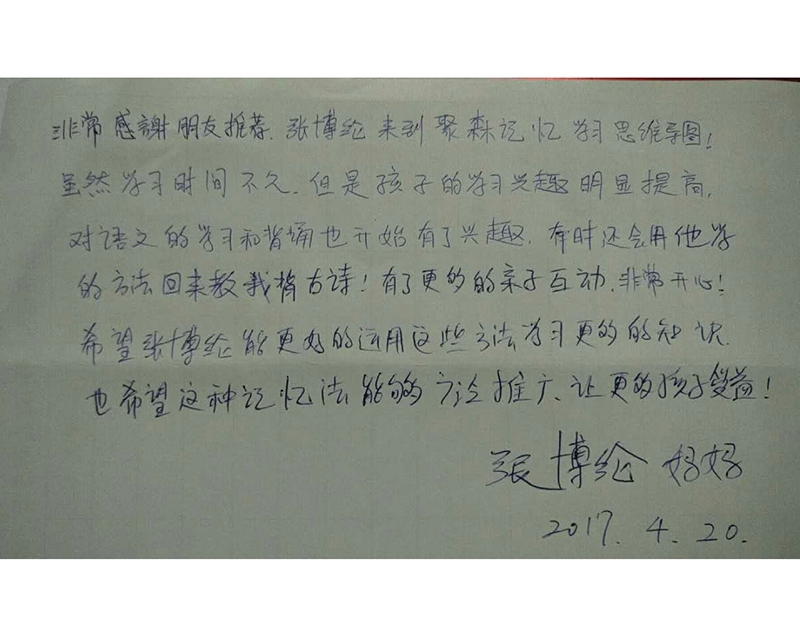 非常感謝朋友推荐.张博纶来到聚森记忆学习思维导图!
虽然学习时间不久.但是孩子的学习兴趣明显提高,
对语文的学习和背诵也开始有了兴趣.有时还会用他学
的方法回来教我背古诗!有了更多的亲子互动.非常开心!
希望张博纶能更好的运用这些方法学习更多的知识.
也希望这种记忆法能够广泛推广、让更多孩子受益!
张博纶妈妈
2017.4.20.